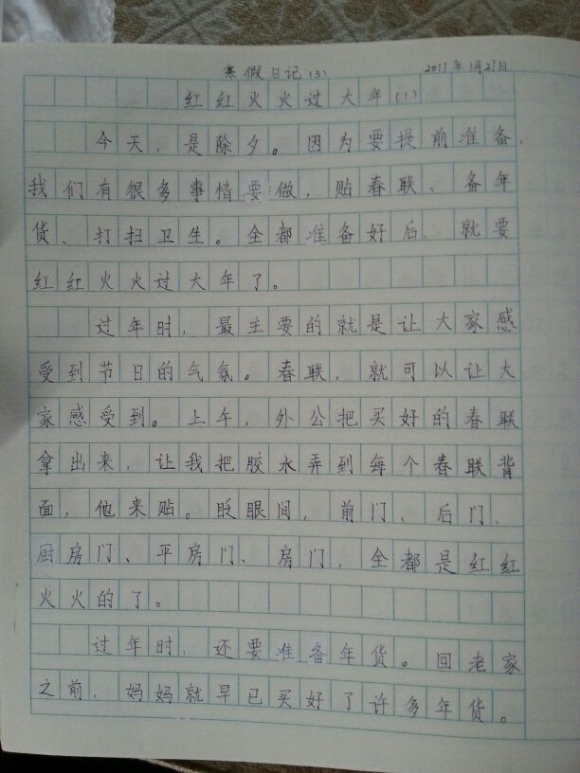 寒假日记(3) 2017年1月27日
红红火火过大年(1)
今天,是除夕。因为要提前准备,
我们有很多事情要做,贴春联、备年
货、打扫卫生。全都准备好后,就要
红红火火过大年了。
过年时,最主要的就是让大家感
受到节日的气氛。春联,就可以让大
家感受到。上午,外公把买好的春联
拿出来,让我把胶水弄到每个春联背
面,他来贴。眨眼间,前门、后门、
厨房门、平房门、房门,全都是红红
火火的了。
过年时,还要准备年货。回老家
之前,妈妈就早已买好了许多年货。